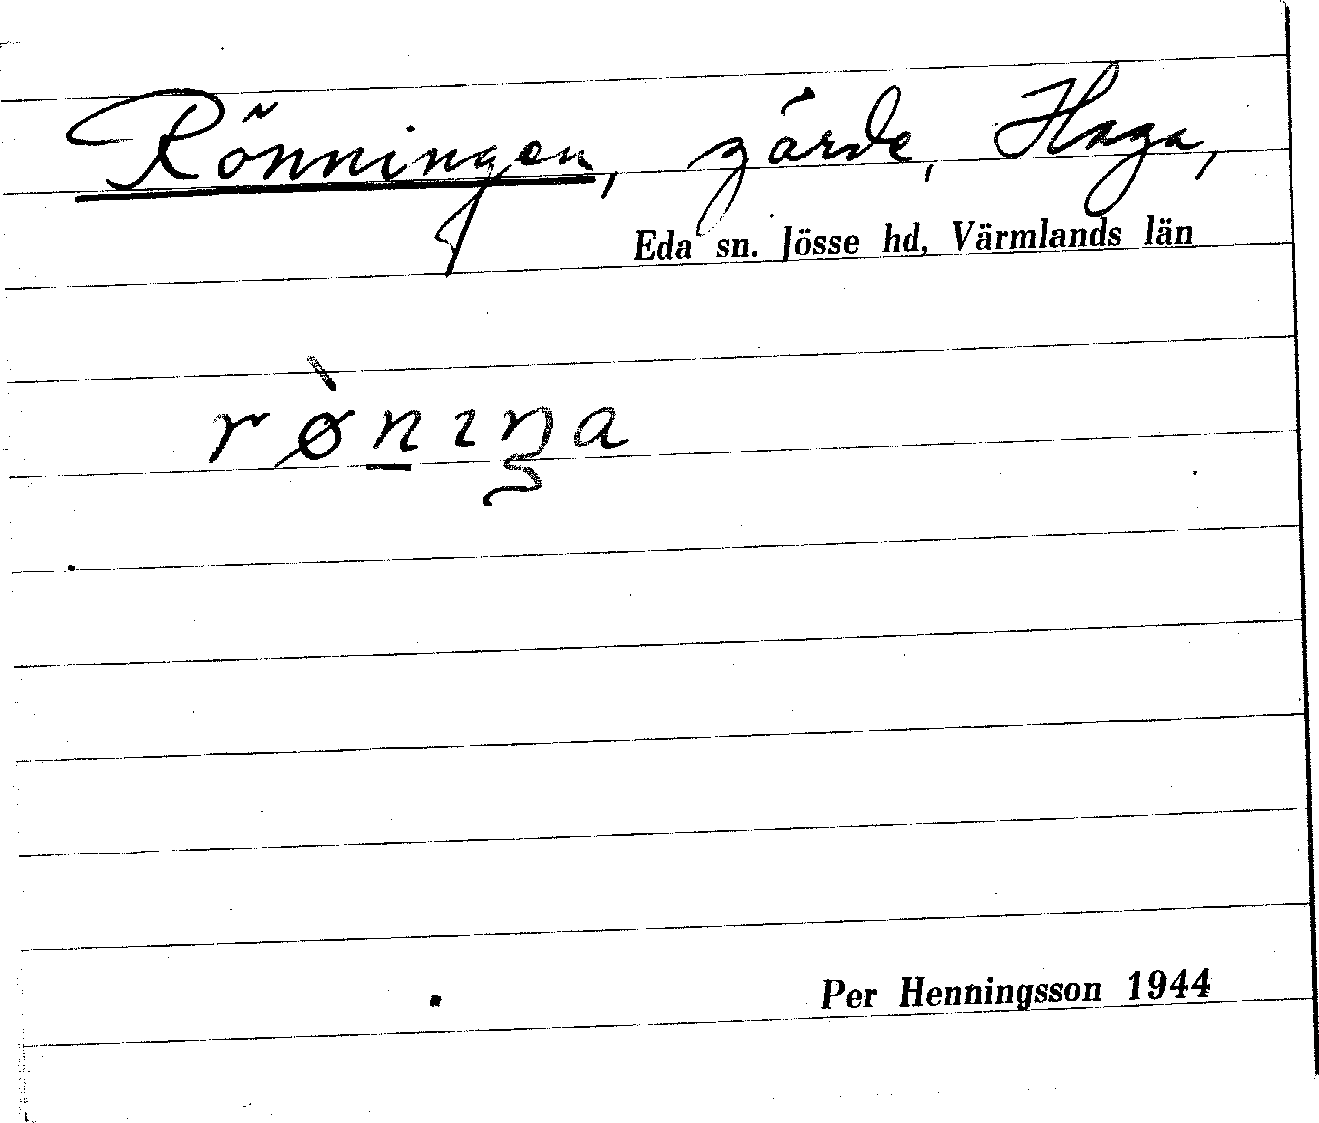 Rönningen, gärde, Haga,
Eda sn. Jösse hd, Värmlands län
rø̀n̠ıŋa
Per Henningsson 1944